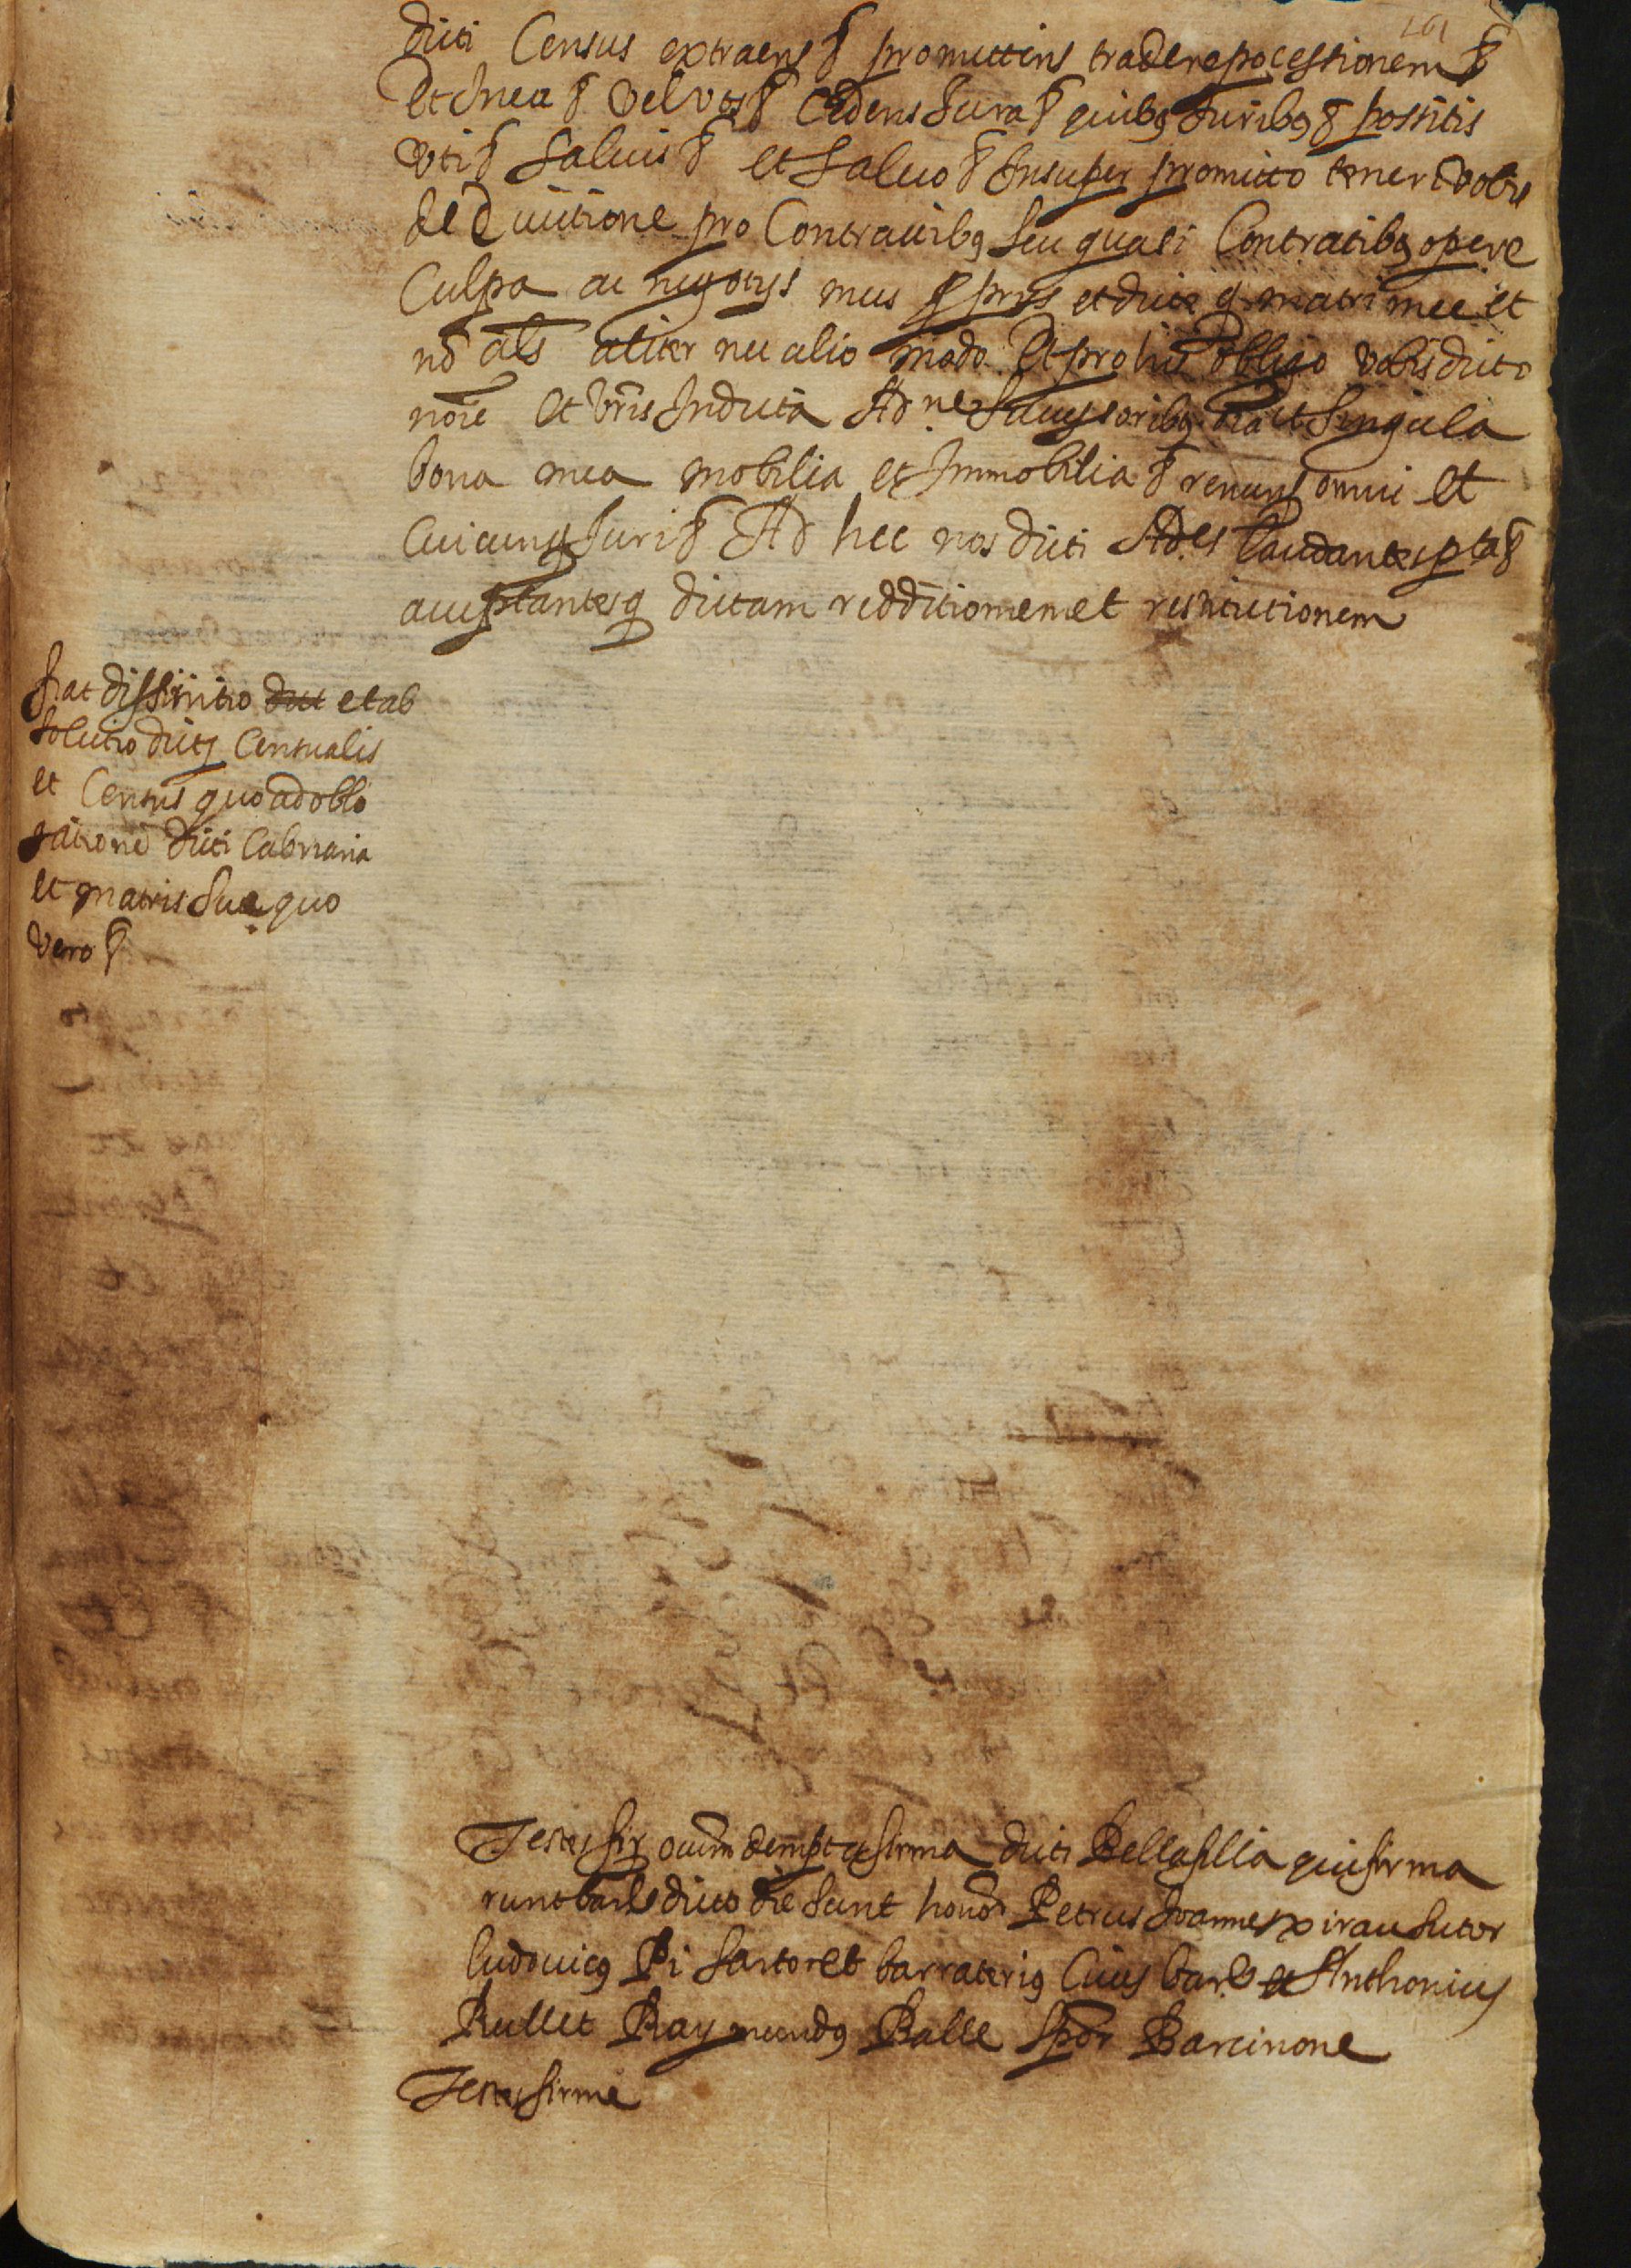 dicti Census extraens & promittens tradere pocessionem &
Et Inea & vel vos & Cedens Jura & quibus Juribus & possitis
uti & salvis & et salvo & Insuper promitto teneri vobis
de Evictione pro Contractibus seu quasi Contractibus opere
Culpa ac negotiis meis propriis et dicte q matri mee et
no als aliter nec alio modo Et pro his obligo vobis dicto
noie Et vris In dicta Adne Successoribus oia et Singula
bona mea mobilia et Immobilia & renuns omni et
Cuicunq Juri & Ad hec nos dicti Ades laudantes pta &
acceptantesq dictam redditionem et restitutionem
fiat diffinitio et ab
solutio dicti Censualis
et Census quo ad obli
gatione dicti Cabraria
et matris sue quo
vero &
Testes fir oium dempta firma dicti Bellafilla qui firma
runt barne dicto die sunt honor Petrus Joannes xirau sutor
Ludovicus Pi sartor et barraterius Cives barne et Anthonius
Rullet Raymundus Balle spor Barcinone
Testes firme